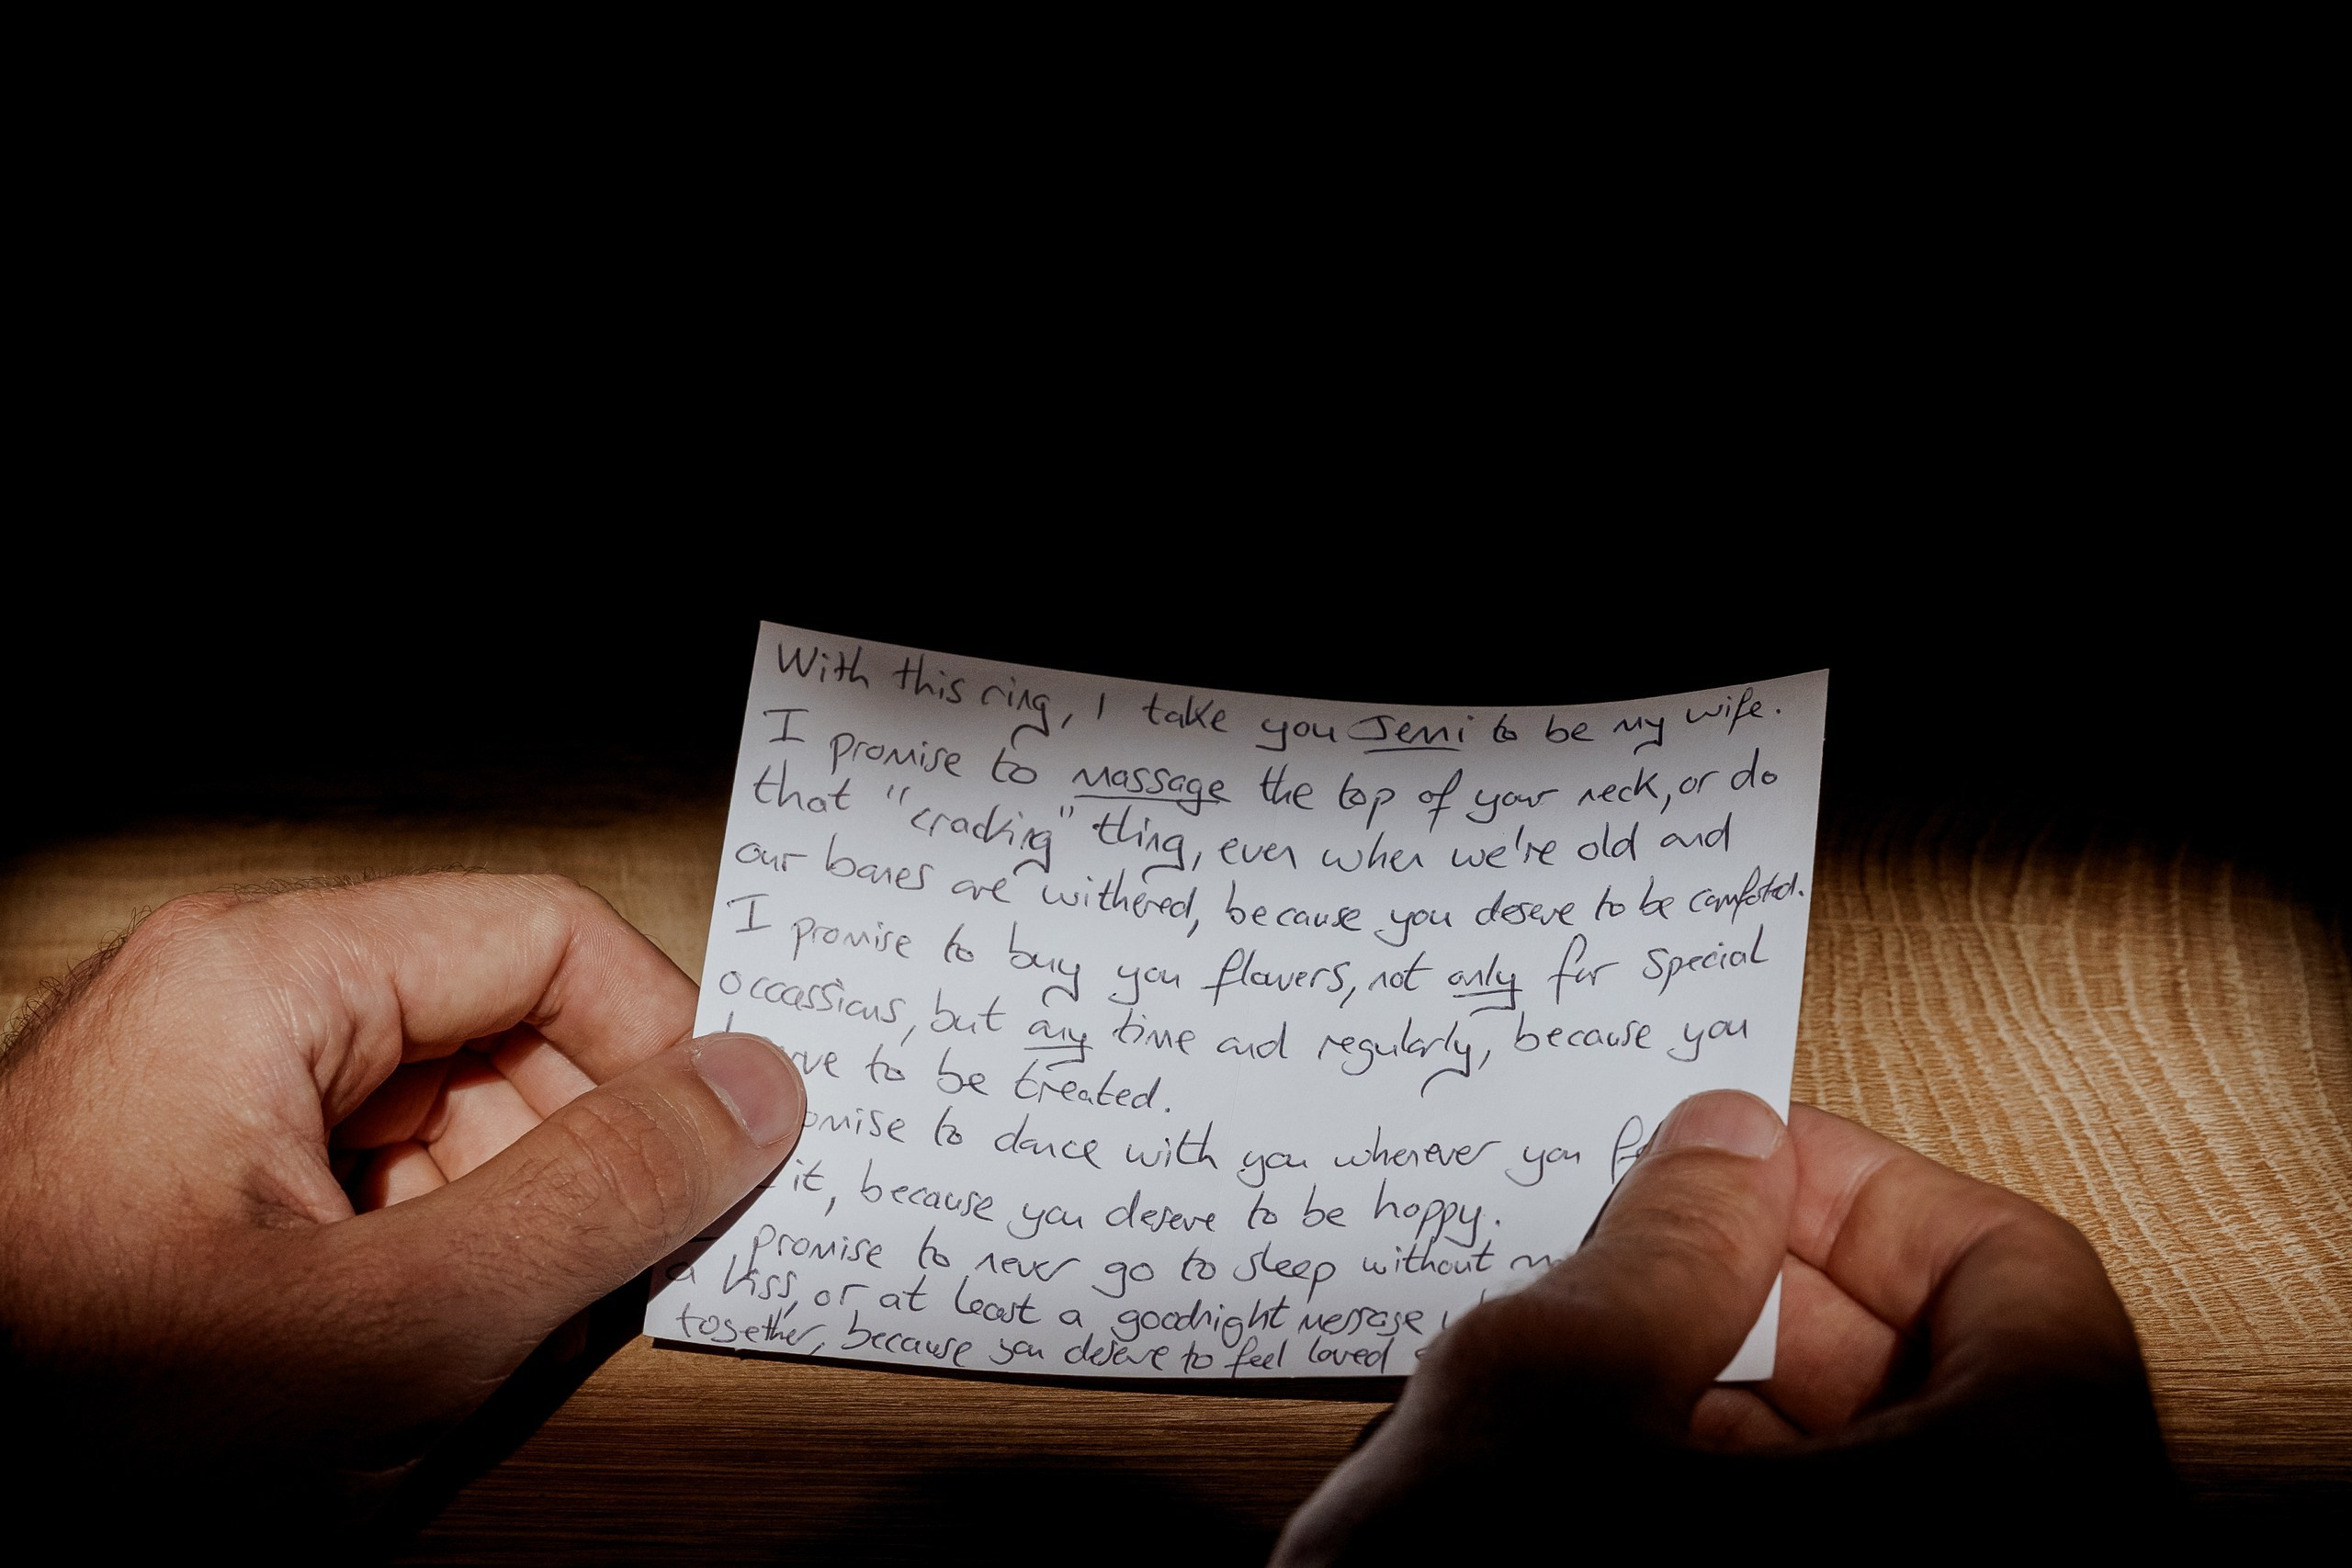 With this ring, I take you Jenni to be my wife.
I promise to massage the top of your neck, or do
that "cracking" thing, even when we're old and
our bones are withered, because you deserve to be comforted.
I promise to buy you flowers, not only for special
occassions, but any time and regularly, because you
to be treated.
to dance with you wherever you
it, because you deserve to be happy.
promise to never go to sleep without
a kiss, or at least a goodnight message
together, because you deserve to feel loved